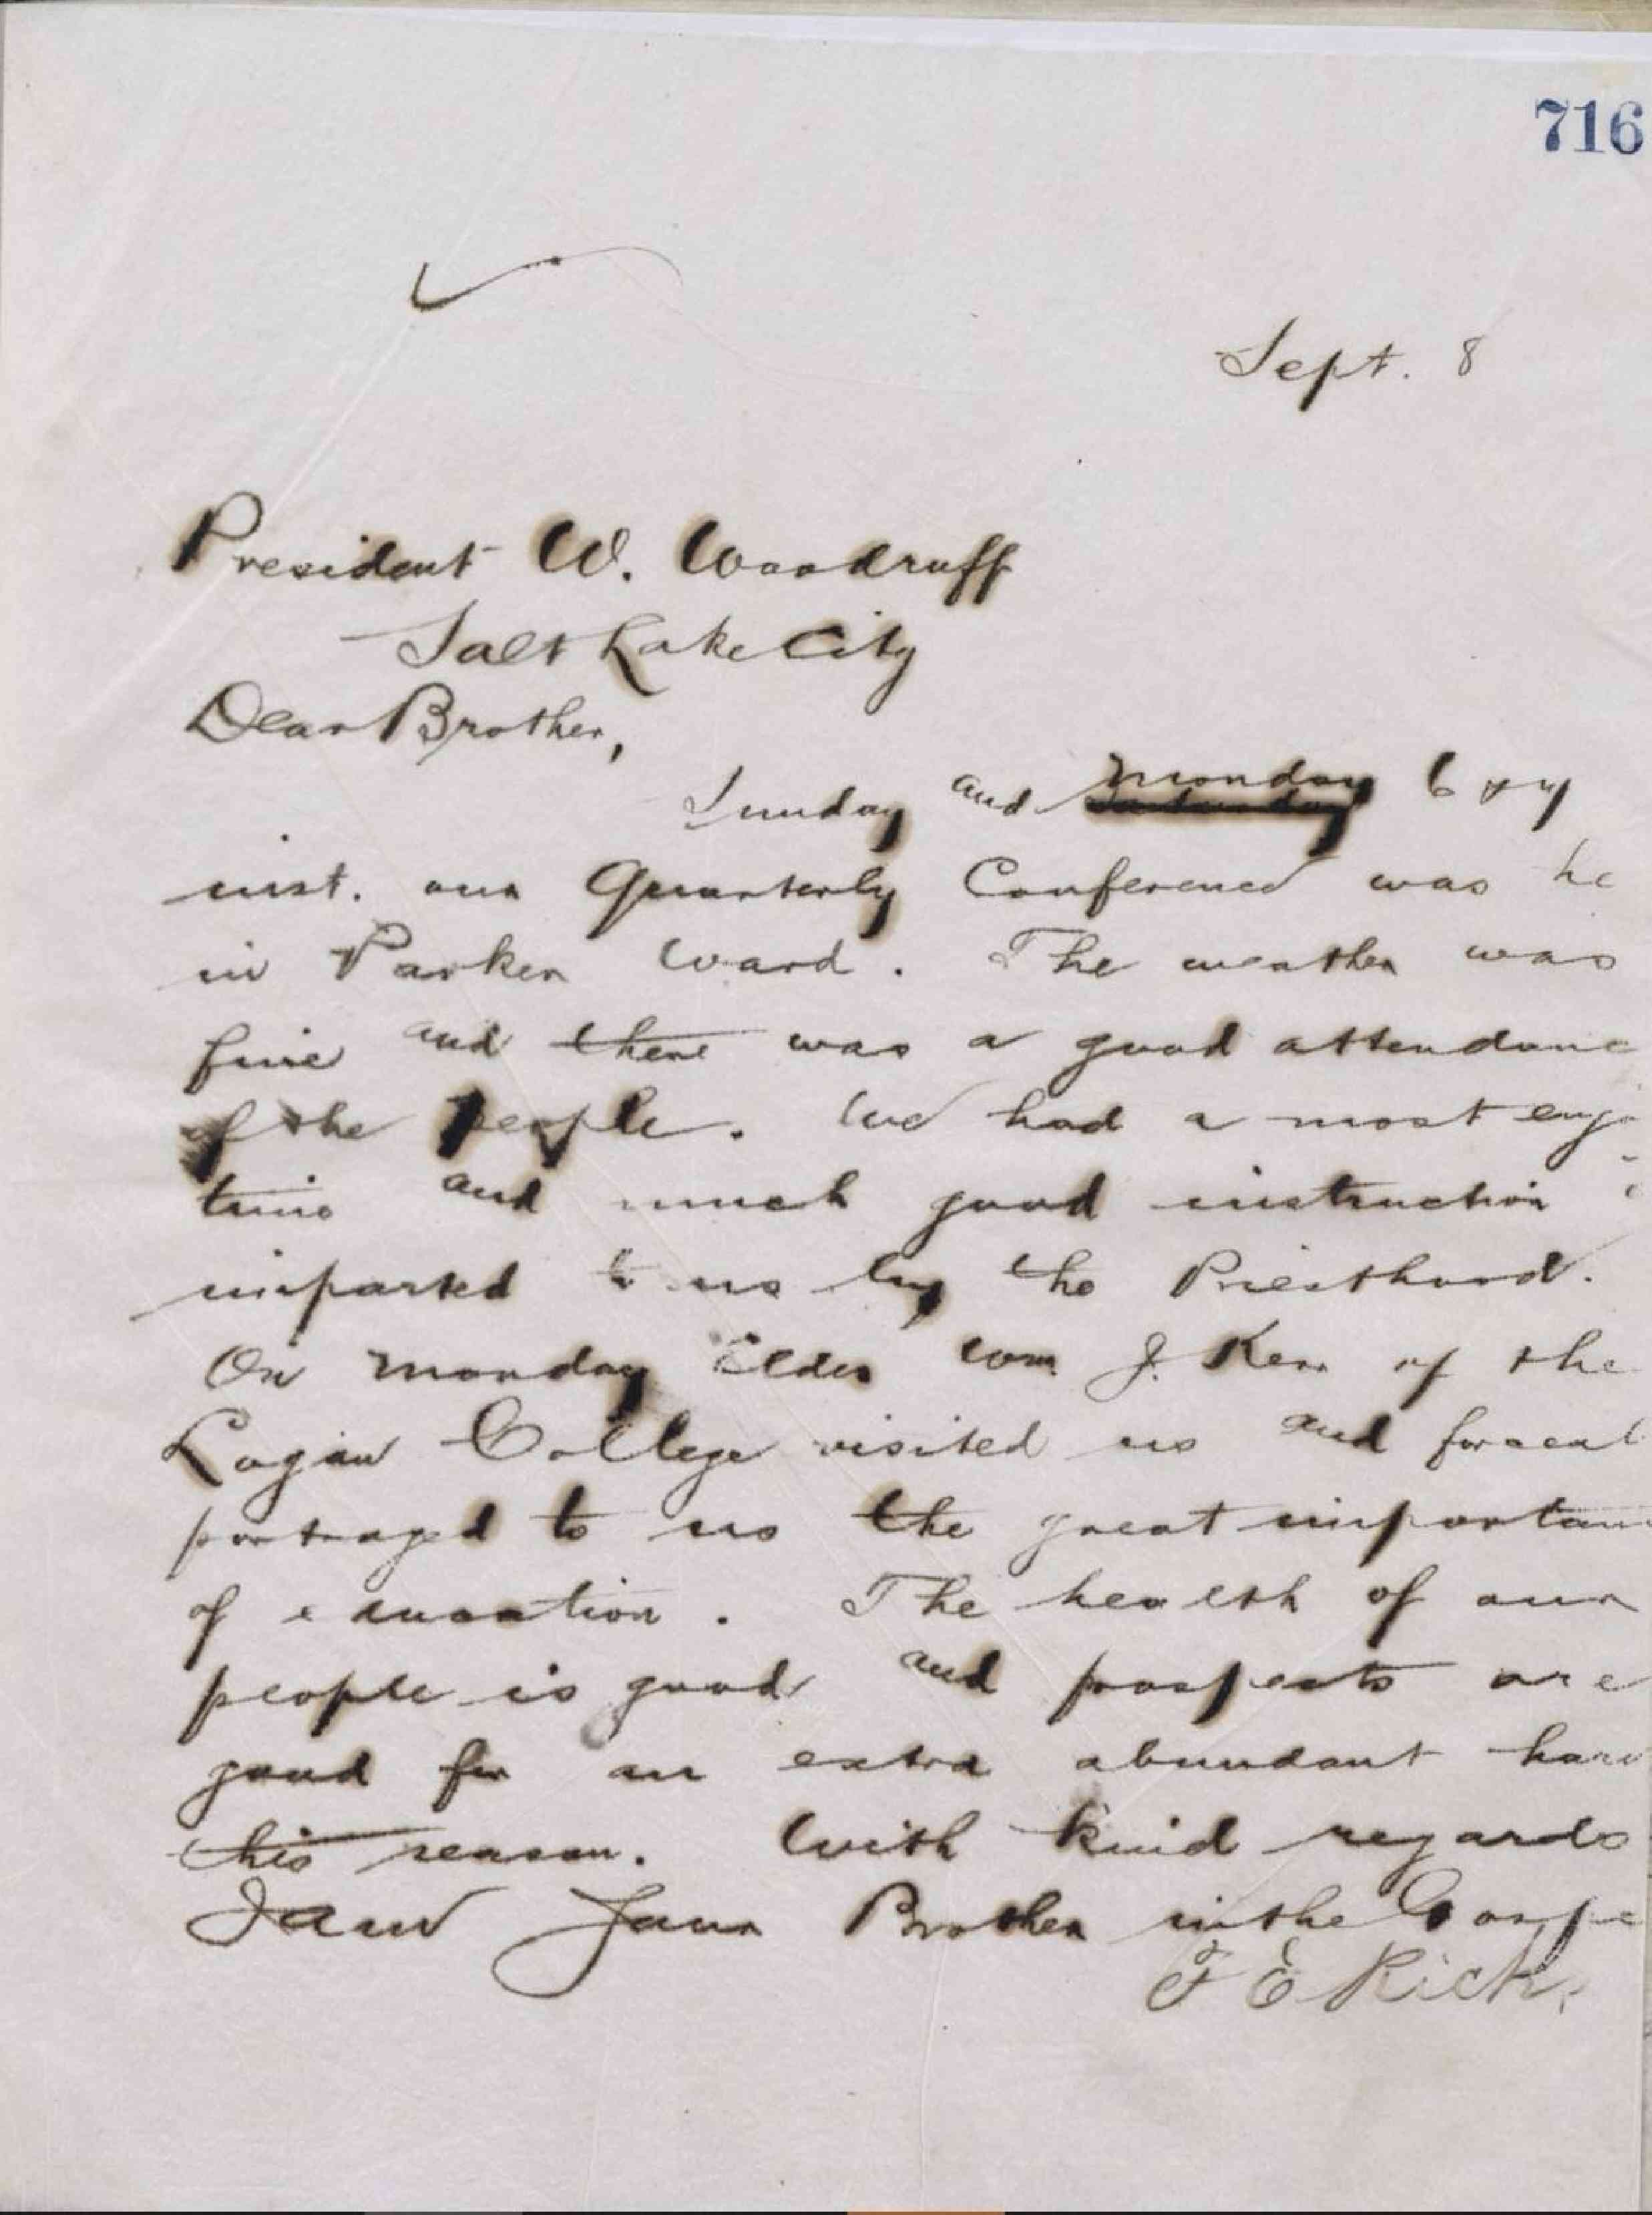 716
Sept. 8
President W. Woodruff
Salt Lake City
Dear Brother,
Sunday and Monday 6 & 7
inst. our Quarterly Conference was he
in Parker Ward. The weather was
fine and there was a good attendanc
of the people. We had a most enjo
time and much good instruction
imparted to us by the Priesthood.
On Monday Elder Wm. J. Kerr of the
Logan College visited us and
portrayed to us the great importan
of education. The health of our
people is good and prospects are
good for an extra abundant harv
this season. With kind regards
I am your Brother in the Gospe
F E Rich.